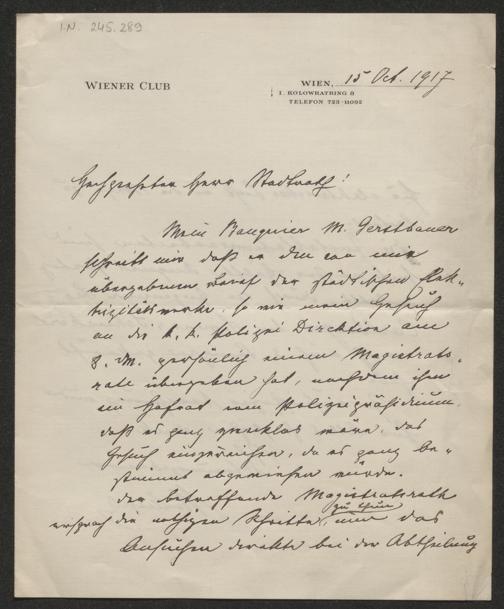 I.N. 245.289
WIENER CLUB
WIEN, 15 Oct. 1917
I. KOLOWRATRING 8
TELEFON 723-11092
Hochgeehrter Herr Stadtrath!
Mein Banquier M. Gerstbauer
schreibt mir daß er den von mir
übergebenen Brief der städtischen Elek-
trizitätswerke, so wie mein Gesuch
an die k. k. Polizei Direktion am
8. dM. persönlich einem Magistrats-
rate übergeben hat, nachdem ihm
ein Hofrat vom Polizeipräsidium
daß es ganz zwecklos wäre, das
Gesuch einzureichen, da es ganz be-
stimmt abgewiesen würde.
Der betreffende Magistratsrath
versprach die nöthigen Schritte zu thun, und das
Ansuchen direkte bei der Abtheilung